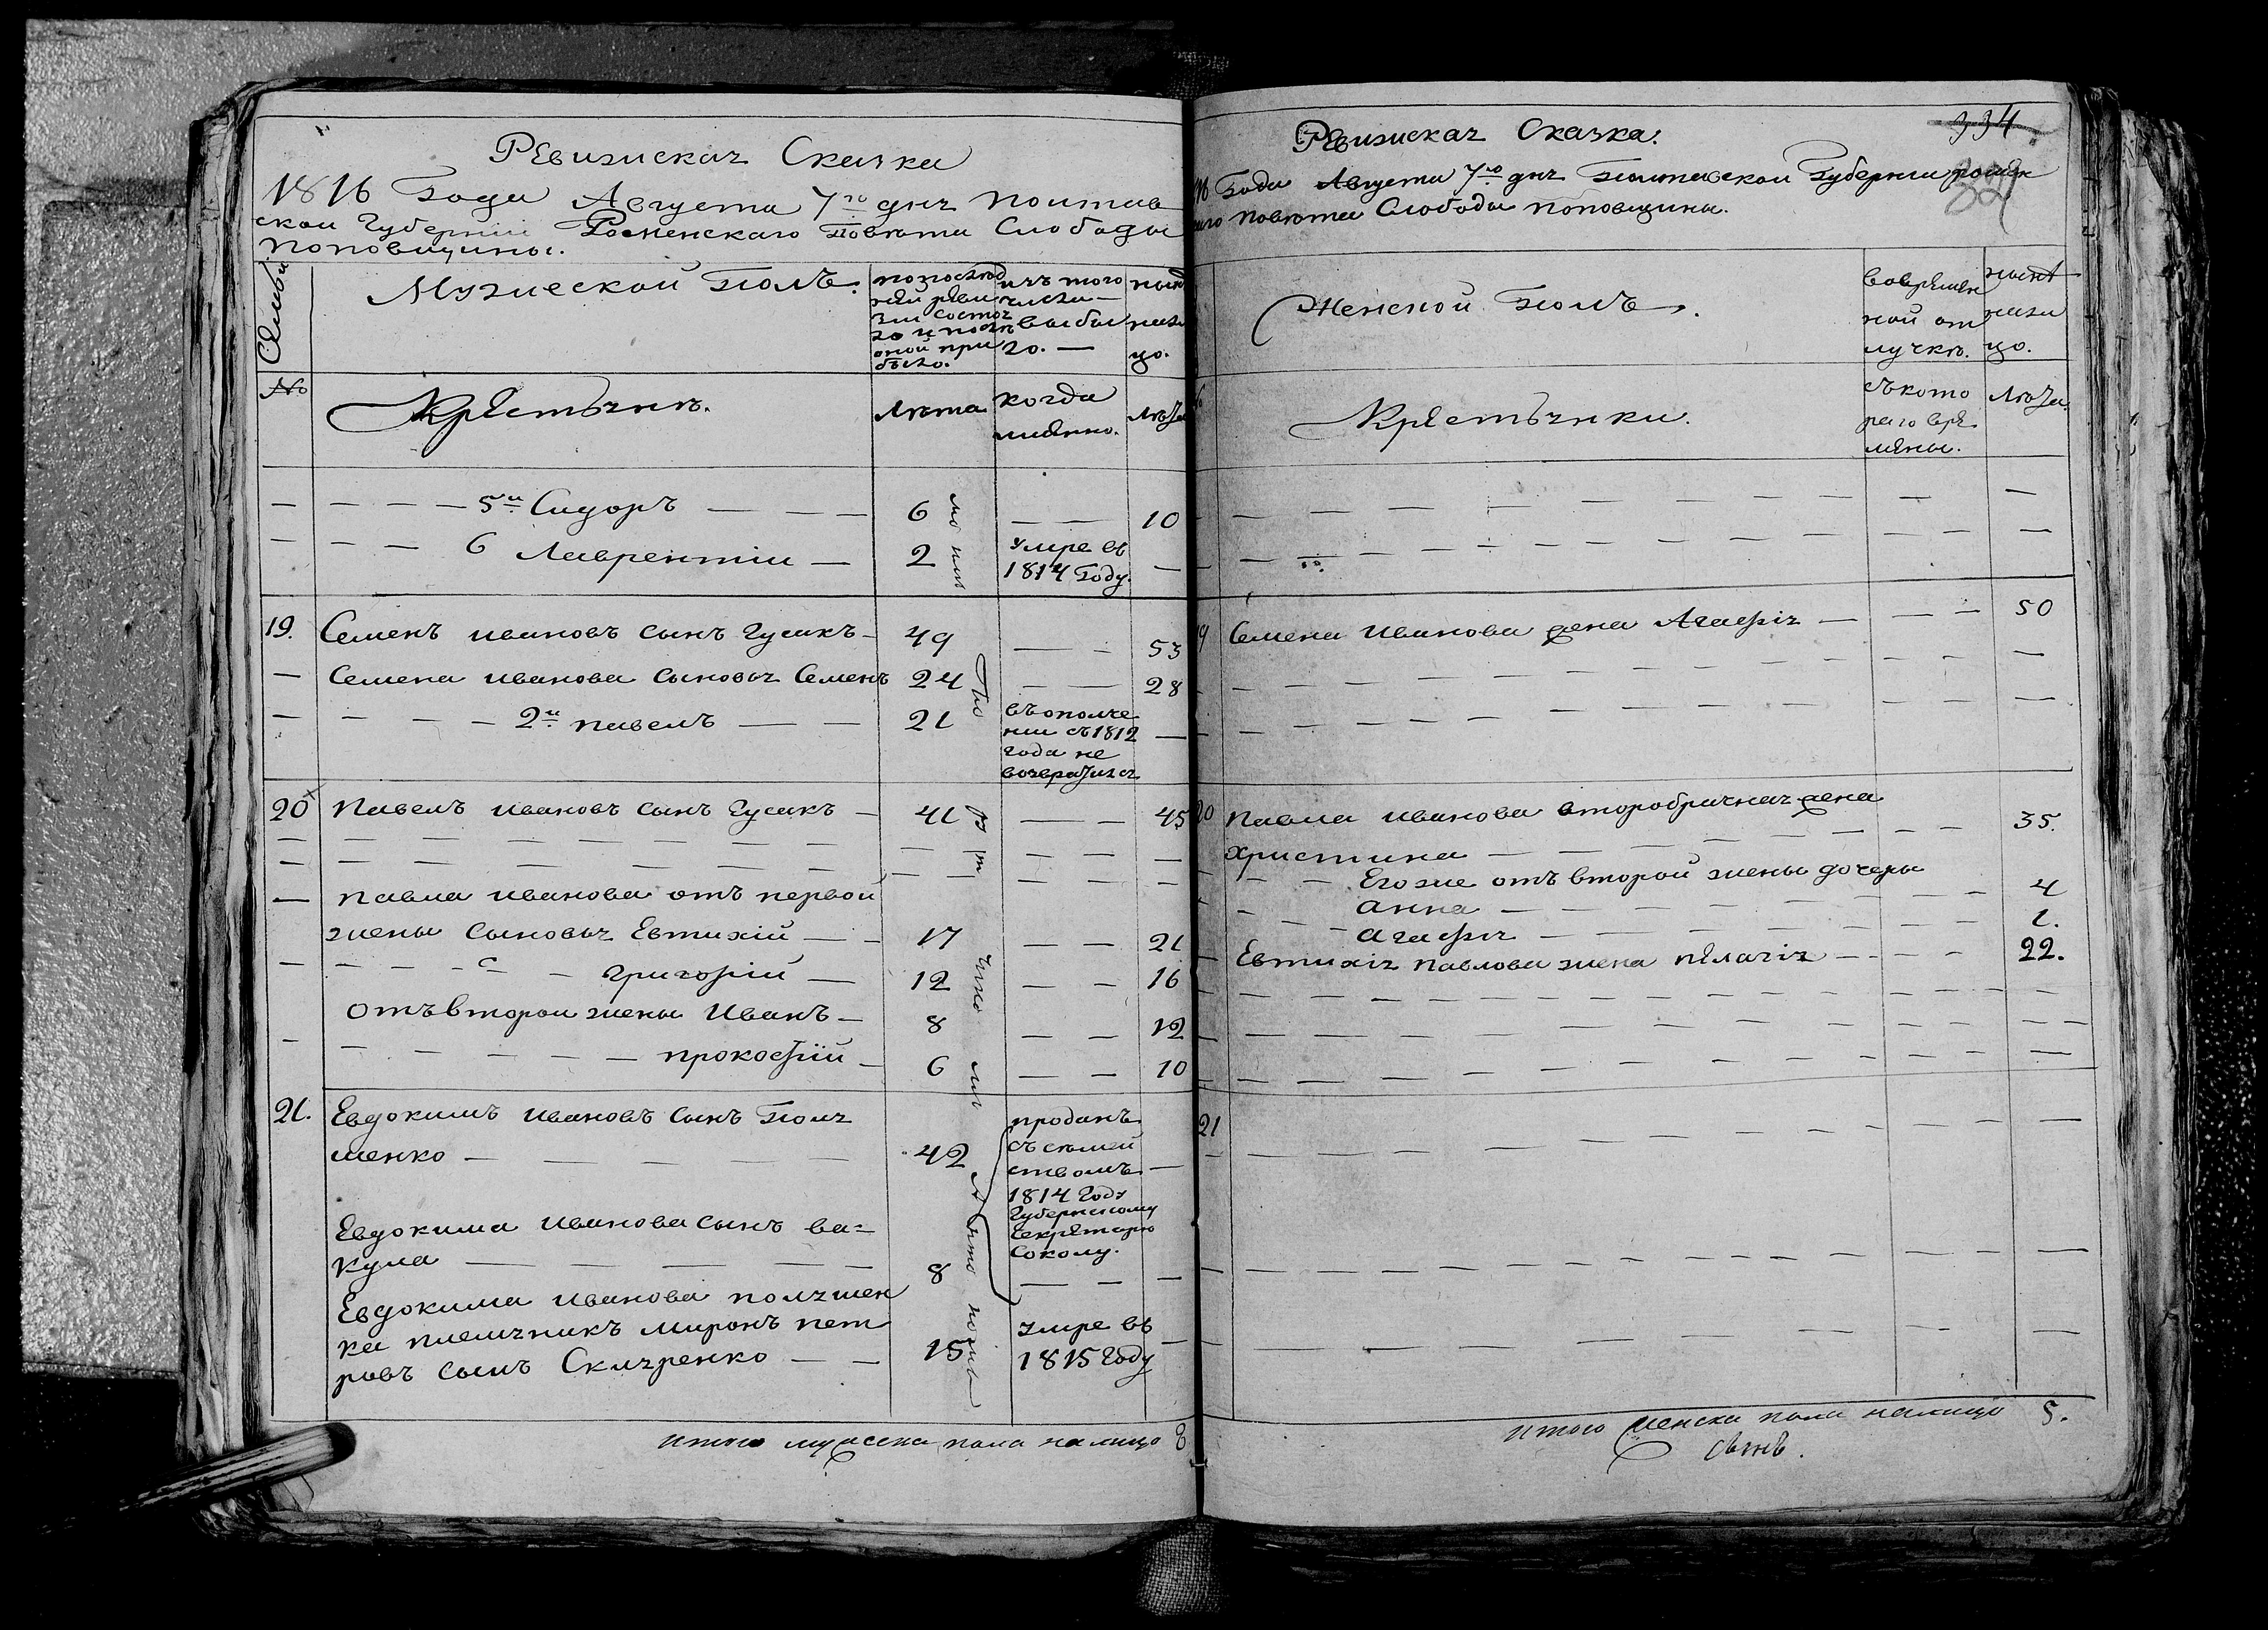 Ревизская Сказка
1816 Года Августа 7го дня Полтав
ской Губернии Роменскаго Повета Слободы
Поповщины.
Семьи
Мужеской Полъ.
по последней ревизии состояло и после оной прибыло.
изъ того числа выбыло.
ныне налицо.
№
Крестьяне.
Лета
когда именно.
Лета
— — — — 5й Сидоръ — — — 6 — — 10
— — — 6 Лаврентии — 2 умре въ 1814 Году. —
19. Семенъ ивановъ сынъ Гусакъ — 49 — — 53
— Семена иванова сыновья Семенъ 24 — — 28
— — — — 2й павелъ — — 21 въ ополчении съ 1812 года не возвратился —
20 Павелъ ивановъ сынъ Гусакъ — 41 — — 45
— павла иванова отъ первой
жены сыновья Евтихій — — 17 — — 21
— — — — — григорій — 12 — — 16
отъ второи жены Иванъ — 8 — — 12
— — — — — — прокофій — 6 — — 10
21. Евдокимъ ивановъ сынъ Поля
шенко — — — — — 42 проданъ съ семействомъ 1814 Году Губернскому Секретарю Соколу. —
Евдокима иванова сынъ ва=
кула — — — — — 8 — — —
Евдокима иванова полячшен
ка племяникъ миронъ пет
ровъ сынъ Скляренко — — 15 умре въ 1815 Году —
итого мужеска пола налицо 8
Ревизская Сказка.
334
Года Августа 7го дня Полтавской Губернии ромен
аго повета Слободы поповщины.
Женской Полъ.
во временной отлучке.
ныне налицо.
Крестьянки.
съ котораго времяны.
Лета.
19 Семена Иванова жена Агафія — — — 50
20 павла иванова второбрачная жена
христина — — — — — — 35.
— — Его же отъ второй жены дочеры
анна — — — — — 4
агафія — — — — — 1.
— Евтихія павлова жена пелагія — — — 22.
21
итого женска пола налицо 5.